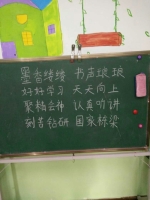 墨香缕缕 书声琅琅
好好学习 天天向上
聚精会神 认真听讲
刻苦钻研 国家栋梁